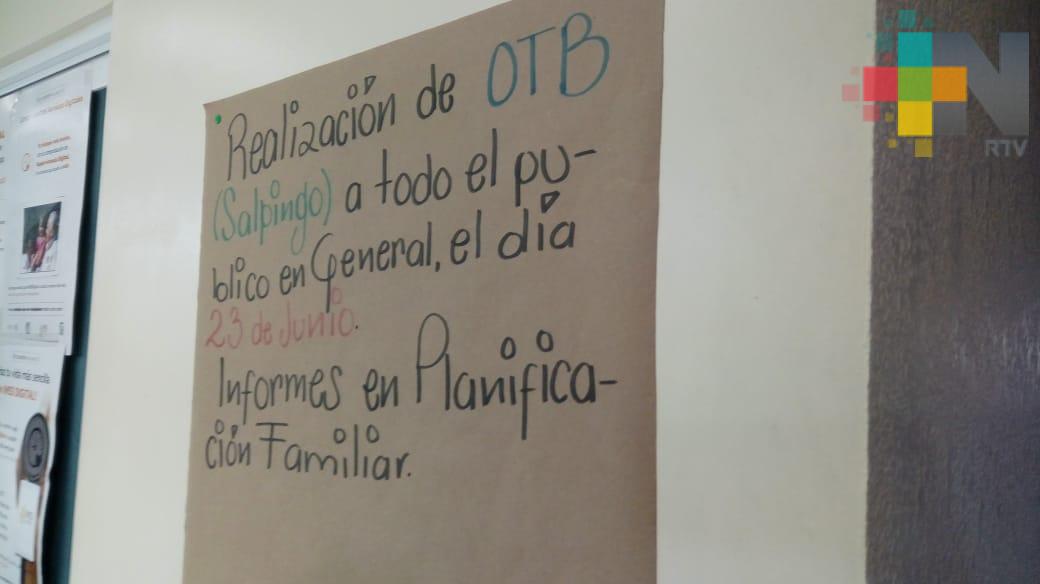 Realización de OTB
(Salpingo) a todo el pu-
blico en General, el día
23 de Junio.
Informes en Planifica-
ción Familiar.
N
RTV